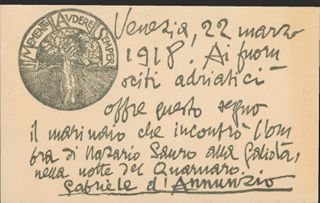 MEMENTO AVDERE SEMPER
Venezia, 22 marzo
1918. Ai fuorusciti adriatici
offre questo segno
il marinaro che incontrò l'ombra
di Nazario Sauro alla Galiola,
nella notte del Quarnaro.
Gabriele d'Annunzio